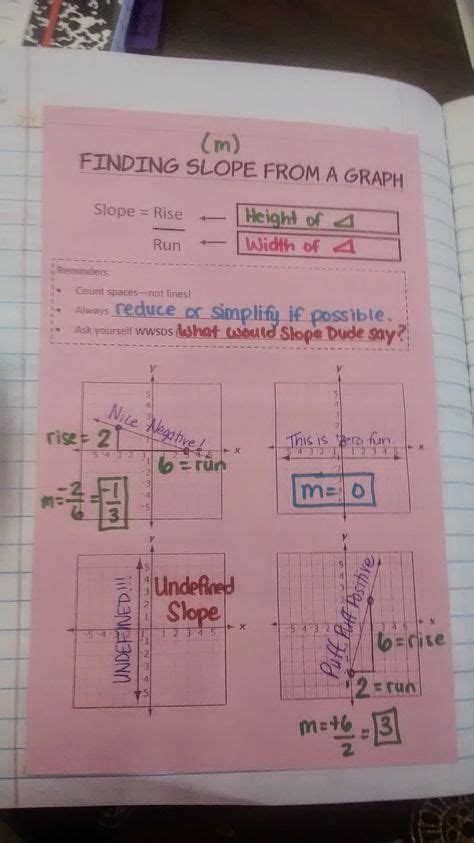 (m)
FINDING SLOPE FROM A GRAPH
Slope = Rise ← Height of
Run ← Width of
Reminders:
• Count spaces—not lines!
• Always reduce or simplify if possible.
• Ask yourself WWSDS (What would Slope Dude say?
y
Nice Negative!
rise = 2
x
6 = run
m = -2/6 = -1/3
y
This is zero fun
x
m = 0
y
UNDEFINED!!!
Undefined
Slope
x
y
Puff, Puff Positive
x
6 = rise
2 = run
m = +6/2 = 3